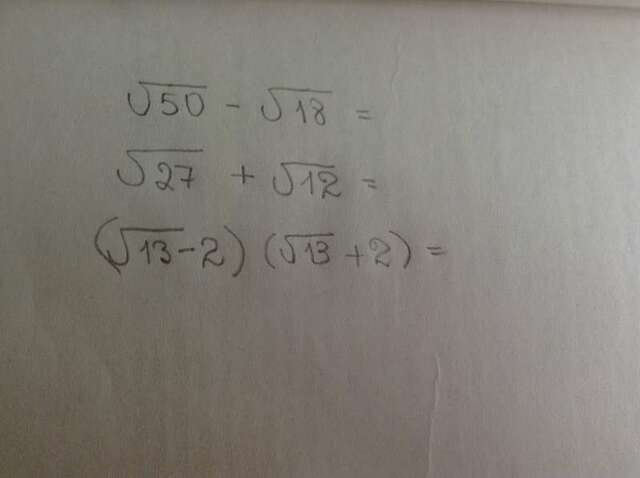 √50 - √18 =
√27 + √12 =
(√13-2) (√13+2) =